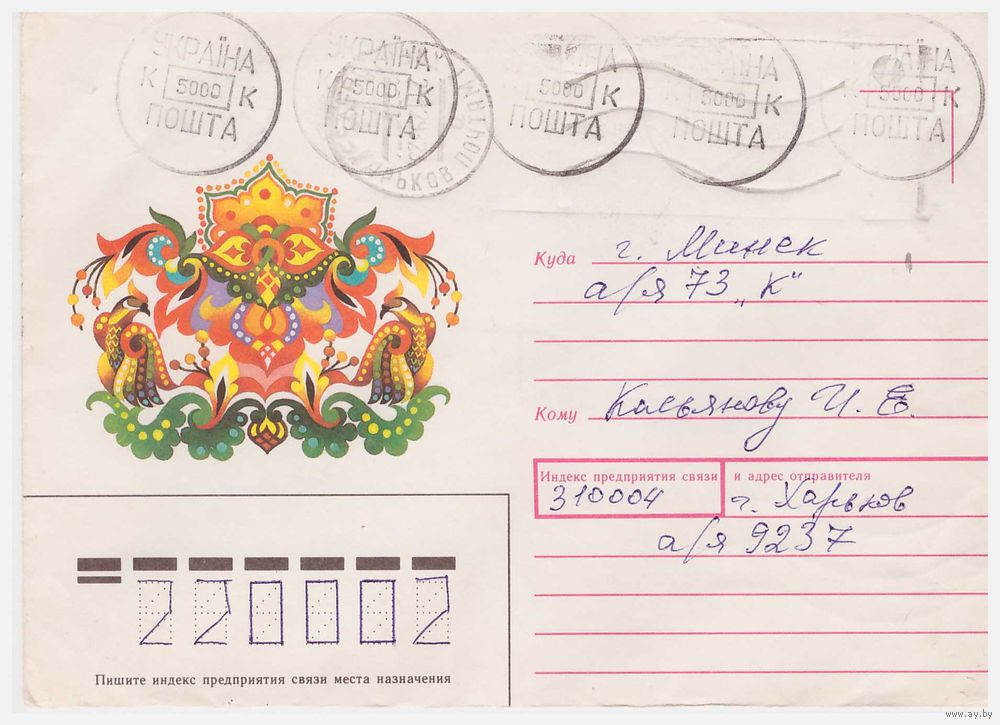 УКРАЇНА УКРАЇНА УКРАЇНА
К 5000 К К 5000 К 5000 К 5000 К К 5000 К
ПОШТА ПОШТА ПОШТА ПОШТА ПОШТА
ХАРЬКОВ ПОЧТАМТ
Куда г. Минск
а/я 73 „К"
Кому Касьянову И. Е.
Индекс предприятия связи и адрес отправителя
310004 г. Харьков
а/я 9237
220002
Пишите индекс предприятия связи места назначения
www.ay.by